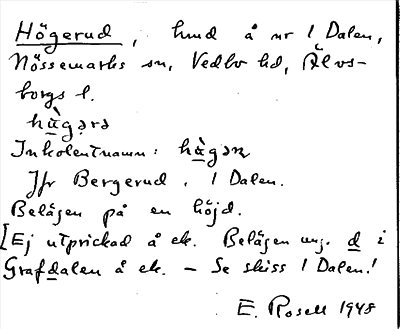 Högerud, hmd å nr 1 Dalen,
Nössemarks sn, Vedbo hd, Älvs-
borgs l.
hὰgərə
Inkolentnamn: hὰgən
Jfr Bergerud, 1 Dalen.
Belägen på en höjd.
[Ej utprickad å ek. Belägen ung. d i
Grafdalen å ek. – Se skiss 1 Dalen!
E. Rosell 1948